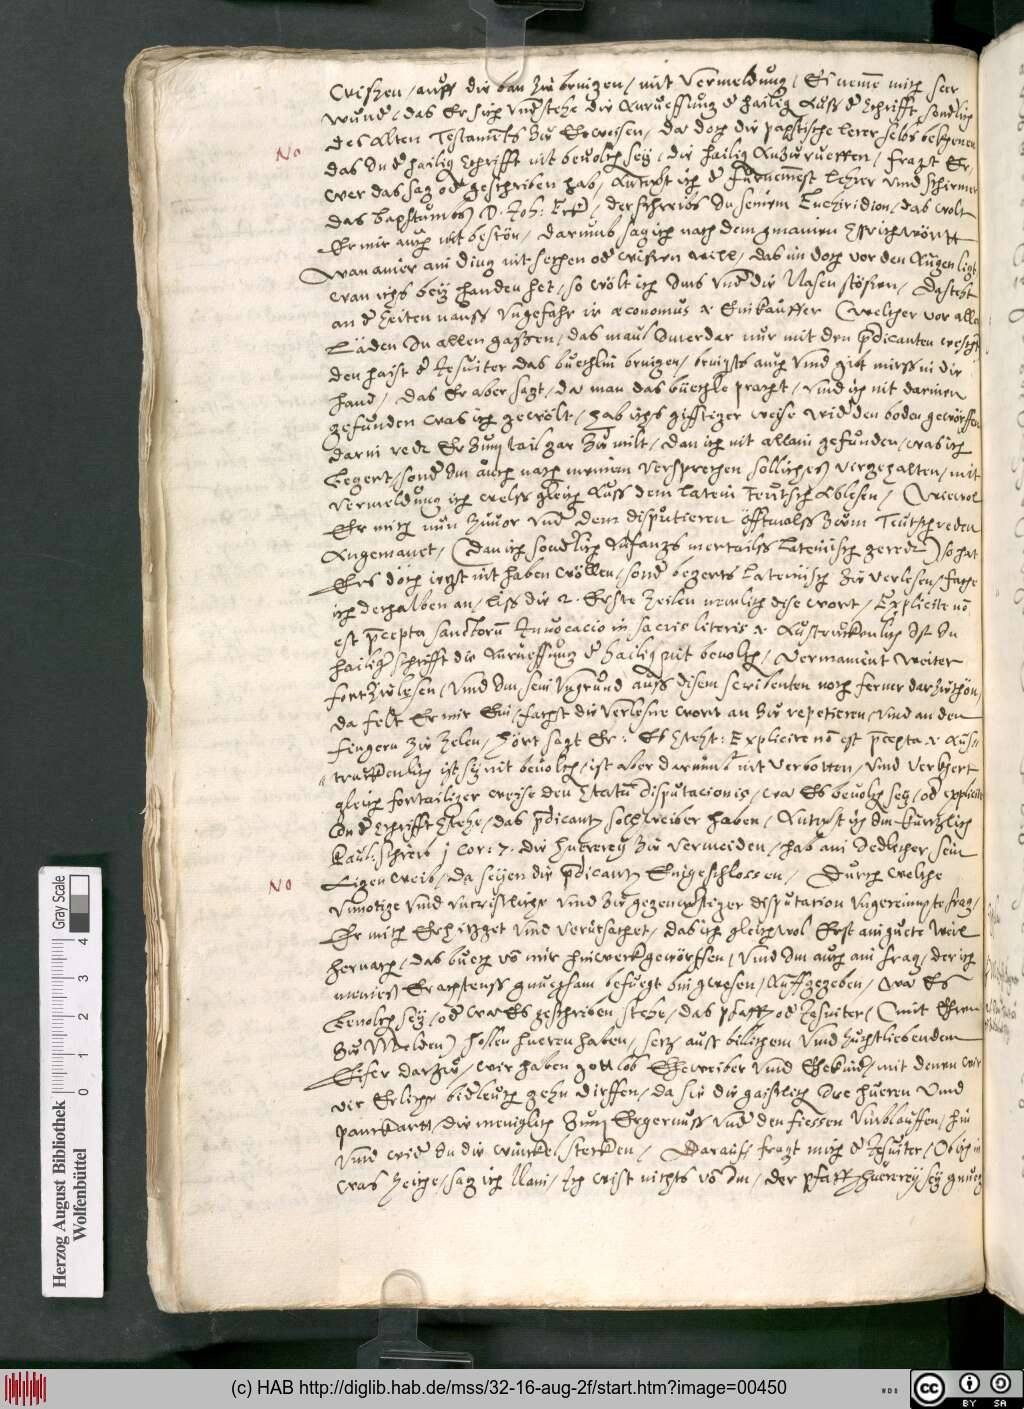 wischen, auff die ban zu bringen, mit vermeldung, Ei neme mich seer
wunder, das Er sich understehe die Anrueffung der hailigen Auss der Schrifft, sonderlich
des Alten Testaments zu Erweisen, da doch die päpstische lerer selbs bekhenen
No das In der hailigen Schrifft nit bevolchen sey, die hailigen Anzurueffen, fragt Er,
wer das sag oder geschriben hab, Antwort ich der fürnemest Lehrer und schirmer
das bapstumbs D. Joh: Eck, der schreibs In seinem Enchiridion, das wolt
Er mir auch nit gestön, darumb sag ich nach dem gmainen Sprichwört
wan ainer ain ding nit sechen oder wissen will, das im doch vor den Augen ligt,
wan ichs bey handen het, so wölt ich Ims under die Nasen stössen, Da steht
an der Zeiten nauss ungefahr ir œconomus & Einkauffer (welcher vor allen
Läden In allen gassen, das maul Imerdar nur mit den predicanten wescht
den haist der Jesuiter das büechlin bringen, bringts auch und gibt mirss in die
hand, das Er aber sagt, da man das büechle pracht, und ich nit darinen
gefunden was ich gewölt, hab ichs gifftiger weise wider den boden geworffen
darin redt Er zum tail gar zu milt, dan ich nit allain gefunden, was ich
begert, sonder Im auch nach meinem versprechen sollichess vergehalten, mit
vermeldung ich welss gleich Auss dem Latein Teutsch Ablesen, (Wiewol
Er mich nun zuvor under dem disputieren öfftmalss zum Teutsch reden
Angemanet, (dan ich sonderlich Anfangs mertailss Lateinisch geredt) so hat
Ers doch ietzt nit haben wöllen, sonder begerts Lateinisch zu verlesen, fache
ich derhalben an, liss die 2. Erste Zeilen nemlich dise wort, Explicite non
est præcepta sanctorum Invocacio in sacris literis & Austruckenlich Ist In
hailiger schrifft die Anrueffung der hailigen nit bevolchen, vermainent weiter
fort zu lesen, und Im sein ungrund auss disem scribenten noch ferner darzuthon,
da felt Er mir Ein, facht die verlesne wort an zu repetieren, und an den
fingern zu zelen, hört sagt Er: Es steht: Explicite non est præcepta & Auss-
truckenlich ist sy nit bevolchen, ist aber darumb nit verbotten, und verkhert
gleich fortailiger weise den Statum disputacionis, wa Es bevolchen sey, oder explicite
In der Schrifft stehe, das predicanten soll weiber haben, Antwort ich Im kurtzlich
Paul: schreib 1 Cor: 7. die huererey zu vermeiden, hab ain Iedlicher sein
No Aigen weib, da seyen die predicanten Eingeschlossen, Durch welche
unnötige und uncristliche und zu gegenwertiger disputation ungereimpte frag,
Er mich Erhitzget und verursachet, das ich gleichwol Erst ain guete weil
hernach, das buech von mir hinweckgeworffen, und Im auch ain frag, der ich
meines Erachtenss gnuegsam befuegt bin gwesen, Auffgegeben, wa Es
bevolchen sey, oder wa Es geschriben stehe, das pfaffen oder Jesuiter, (mit Ehren
zu Melden) sollen hueren haben, setz auss billichem und zuchtliebendem
Eifer darzu, wir haben gott lob Eheweiber und Ehekinder, mit denen wir
vir Erliche biderleuth gehn dirffen, da sie die gaistlichen Ire hueren Und
panckart, die meniglich zum Ergernuss under den fiessen umblauffen, hin
und wider In die winckel stecken, Darauff fragt mich der Jesuiter, Ob ich in
was zeiche, sag ich Nain, Ich wist nichts von Im, der pfaffen huererey sey gnueg
Herzog August Bibliothek
Wolfenbüttel
0 1 2 3 4
Gray Scale
(c) HAB http://diglib.hab.de/mss/32-16-aug-2f/start.htm?image=00450
WDB
cc BY SA